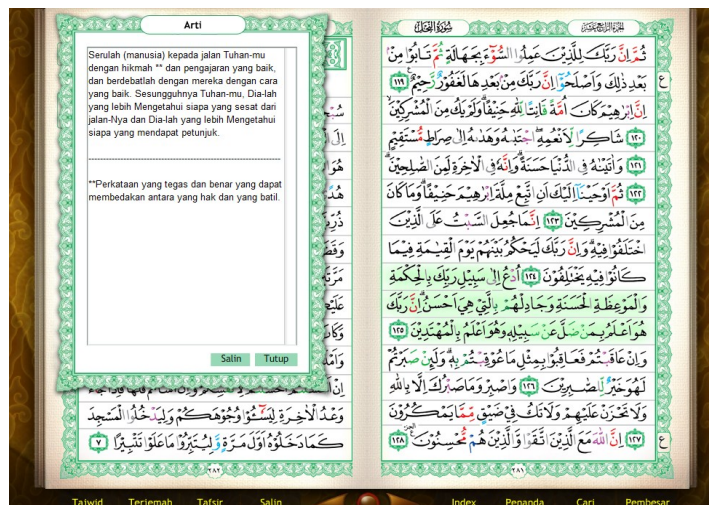 Arti
Serulah (manusia) kepada jalan Tuhan-mu
dengan hikmah ** dan pengajaran yang baik,
dan berdebatlah dengan mereka dengan cara
yang baik. Sesungguhnya Tuhan-mu, Dia-lah
yang lebih Mengetahui siapa yang sesat dari
jalan-Nya dan Dia-lah yang lebih Mengetahui
siapa yang mendapat petunjuk.
**Perkataan yang tegas dan benar yang dapat
membedakan antara yang hak dan yang batil.
Salin Tutup
وَعْدُ الْاٰخِرَةِ لِيَسٗۤـُٔوْا وُجُوْهَكُمْ وَلِيَدْخُلُوا الْمَسْجِدَ
كَمَا دَخَلُوْهُ اَوَّلَ مَرَّةٍ وَّلِيُتَبِّرُوْا مَا عَلَوْا تَتْبِيْرًا ٧
٢٨٢
سُوْرَةُ النَّحْلِ
ثُمَّ اِنَّ رَبَّكَ لِلَّذِيْنَ عَمِلُوا السُّوْۤءَ بِجَهَالَةٍ ثُمَّ تَابُوْا مِنْ
بَعْدِ ذٰلِكَ وَاَصْلَحُوْٓا اِنَّ رَبَّكَ مِنْ بَعْدِهَا لَغَفُوْرٌ رَّحِيْمٌ ١١٩ ع
اِنَّ اِبْرٰهِيْمَ كَانَ اُمَّةً قَانِتًا لِّلّٰهِ حَنِيْفًا وَلَمْ يَكُ مِنَ الْمُشْرِكِيْنَ
١٢٠ شَاكِرًا لِّاَنْعُمِهِ اجْتَبٰىهُ وَهَدٰىهُ اِلٰى صِرَاطٍ مُّسْتَقِيْمٍ
١٢١ وَاٰتَيْنٰهُ فِى الدُّنْيَا حَسَنَةً وَاِنَّهٗ فِى الْاٰخِرَةِ لَمِنَ الصّٰلِحِيْنَ
١٢٢ ثُمَّ اَوْحَيْنَآ اِلَيْكَ اَنِ اتَّبِعْ مِلَّةَ اِبْرٰهِيْمَ حَنِيْفًا وَمَا كَانَ
مِنَ الْمُشْرِكِيْنَ ١٢٣ اِنَّمَا جُعِلَ السَّبْتُ عَلَى الَّذِيْنَ
اخْتَلَفُوْا فِيْهِ وَاِنَّ رَبَّكَ لَيَحْكُمُ بَيْنَهُمْ يَوْمَ الْقِيٰمَةِ فِيْمَا
كَانُوْا فِيْهِ يَخْتَلِفُوْنَ ١٢٤ اُدْعُ اِلٰى سَبِيْلِ رَبِّكَ بِالْحِكْمَةِ
وَالْمَوْعِظَةِ الْحَسَنَةِ وَجَادِلْهُمْ بِالَّتِيْ هِيَ اَحْسَنُ اِنَّ رَبَّكَ
هُوَ اَعْلَمُ بِمَنْ ضَلَّ عَنْ سَبِيْلِهٖ وَهُوَ اَعْلَمُ بِالْمُهْتَدِيْنَ ١٢٥
وَاِنْ عَاقَبْتُمْ فَعَاقِبُوْا بِمِثْلِ مَا عُوْقِبْتُمْ بِهٖ وَلَىِٕنْ صَبَرْتُمْ
لَهُوَ خَيْرٌ لِّلصّٰبِرِيْنَ ١٢٦ وَاصْبِرْ وَمَا صَبْرُكَ اِلَّا بِاللّٰهِ
وَلَا تَحْزَنْ عَلَيْهِمْ وَلَا تَكُ فِيْ ضَيْقٍ مِّمَّا يَمْكُرُوْنَ
١٢٧ اِنَّ اللّٰهَ مَعَ الَّذِيْنَ اتَّقَوْا وَّالَّذِيْنَ هُمْ مُّحْسِنُوْنَ ١٢٨ ع
٢٨١
Tajwid Terjemah Tafsir Salin Index Penanda Cari Pembesar